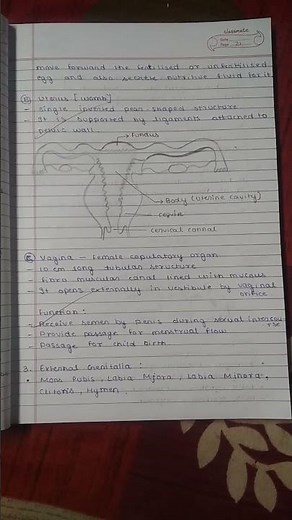 classmate
Date
Page 21
move forward the fertilised or unfertilised
egg and also secrete nutritive fluid for it
Uterus [womb]
- Single inverted pear shaped structure
- It is supported by ligaments attached to
pelvic wall.
→ Fundus
→ Body (uterine cavity)
- cervix
- cervical cannal
Vagina - Female copulatory organ
- 10 cm long tubular structure
- Fibro muscular canal lined with mucous
- It opens externally in vestibule by vaginal
orifice
Function :
- Receive semen by penis during sexual intercou
rse
- Provide passage for menstrual flow
- Passage for child birth
3. External Genitalia :
• Mons Pubis, Labia Mjora, Labia Minora,
Clitoris, Hymen